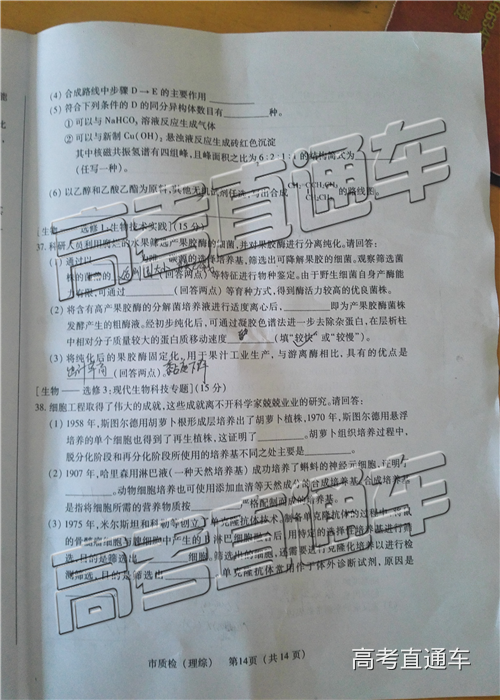 (4) 合成路线中步骤 D → E 的主要作用
(5) 符合下列条件的 D 的同分异构体数目有 种。
① 可以与 NaHCO3 溶液反应生成气体
② 可以与新制 Cu(OH)2 悬浊液反应生成砖红色沉淀
其中核磁共振氢谱有四组峰，且峰面积之比为 6:2:1:1 的结构简式为
(任写一种)。
(6) 以乙醇和乙酸乙酯为原料，其他无机试剂任选，写出合成 的路线图。
[生物 选修1:生物技术实践](15 分)
37. 科研人员利用腐烂的水果筛选产果胶酶的细菌，并对果胶酶进行分离纯化。请回答:
(1) 通过以 为唯一碳源的选择培养基，筛选出可降解果胶的细菌。观察筛选菌
株的菌落的 (回答两点) 等特征进行物种鉴定。由于野生细菌自身产酶能
力有限，可通过 (回答两点)等育种方式，得到酶活力较高的优良菌株。
(2) 将含有高产果胶酶菌株的分解菌培养液进行适度离心后， 即为产果胶酶菌株
发酵产生的粗酶液。经初步纯化后，可通过凝胶色谱法进一步去除杂蛋白，在层析柱
中相对分子质量较大的蛋白质移动速度 (填“较快”或“较慢”)。
(3) 将纯化后的果胶酶固定化，用于果汁工业生产，与游离酶相比，具有的优点是
(回答两点)
[生物——选修3:现代生物科技专题](15 分)
38. 细胞工程取得了伟大的成就，这些成就离不开科学家兢兢业业的研究。请回答:
(1) 1958 年，斯图尔德用胡萝卜根形成层培养出了胡萝卜植株，1970 年，斯图尔德用悬浮
培养的单个细胞也得到了再生植株，这证明了 。胡萝卜组织培养过程中，
脱分化阶段和再分化阶段所使用的培养基不同之处主要是 。
(2) 1907 年，哈里森用淋巴液(一种天然培养基) 成功培养了蝌蚪的神经元细胞，证明了
。动物细胞培养也可使用添加血清等天然成分的合成培养基，合成培养基
是指将细胞所需的营养物质按 严格配制而成的培养基。
(3) 1975 年，米尔斯坦和科勒等创立了单克隆抗体技术。制备单克隆抗体的过程中，将鼠
的骨髓瘤细胞与脾细胞中产生的 B 淋巴细胞融合后，用特定的选择性培养基进行筛
选，目的是筛选出 细胞。筛选出的细胞，还需要进行克隆化培养以进行检
测筛选，目的是筛选出 。单克隆抗体常用作于体外诊断试剂，原因是
市质检（理综） 第14页（共14页）
高考直通车
高考直通车
高考直通车